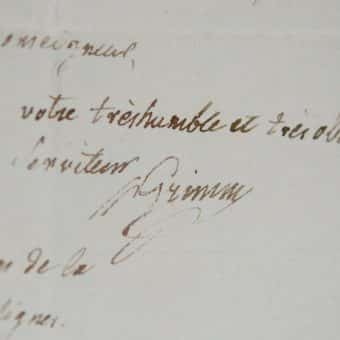 onseigneur,
votre très humble et très obé
Serviteur
Grimm
de la
ligner.